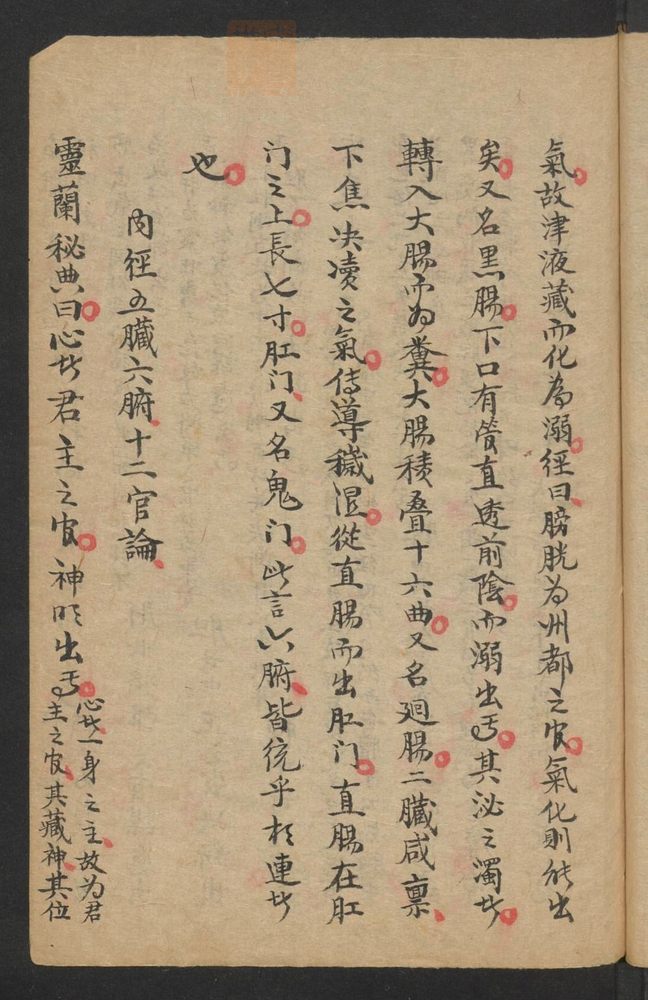 氣故津液藏而化為溺經曰膀胱为州都之官氣化則能出
矣又名黑腸下口有管直透前陰而溺出焉其泌之濁者
轉入大腸而为糞大腸積叠十六曲又名廻腸二臟咸禀
下焦决凟之氣傳導穢濕從直腸而出肛门直腸在肛
门之上長七寸肛门又名鬼门此言六腑皆统乎相連者
也
内徑五臟六腑十二官論
靈蘭秘典曰心者君主之官神明出焉心者一身之主故为君
主之官其藏神其位